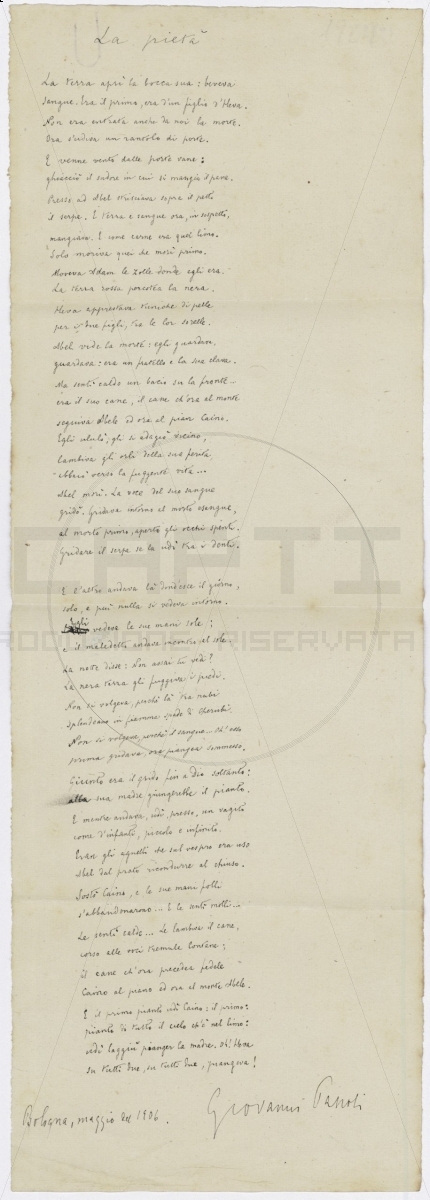 La pietà
La terra aprì la bocca sua: beveva
sangue. Era il primo, era d'un figlio d'Heva.
Non era entrata anche da noi la morte.
Ora s'udiva un rantolo di porte.
E venne vento dalle porte vane:
ghiacciò il sudore in cui si mangia il pane.
Presso ad Abel strisciava sopra il petto
il serpe. E terra e sangue ora, in sospetto,
mangiava. E come carne era quel limo.
Solo moriva quei che morì primo.
Moveva Adam le zolle donde egli era.
La terra rossa percotea la nera.
Heva apprestava tuniche di pelle
per i due figli, tra le lor sorelle.
Abel vide la morte: egli guardava,
guardava: era un fratello e la sua clava.
Ma sentì caldo un bacio su la fronte...
era il suo cane, il cane ch'ora al monte
seguiva Abele ed ora al pian Caino.
Egli ululò; gli si adagiò vicino,
lambiva gli orli della sua ferita,
abbaiò verso la fuggente vita...
Abel morì. La voce del suo sangue
gridò. Gridava intorno al morto esangue,
al morto primo, aperto gli occhi spenti.
Gridare il serpe se la udì tra i denti.
E l'altro andava là dond'esce il giorno,
solo, e più nulla si vedeva intorno.
egli vedeva le sue mani sole;
e il maledetto andava incontro al sole.
La notte disse: Non assai tu vedi?
La nera terra gli fuggiva i piedi.
Non si volgeva, perché là tra nubi
splendeano in fiamme spade di cherubi.
Non si volgeva, perché il sangue, ch'esso
prima gridava, ora piangea sommesso.
Giunto era il grido fin a Dio soltanto:
alla sua madre giungerebbe il pianto.
E mentre andava, udì, presso, un vagito
come d'infanti, piccolo e infinito.
Eran gli agnelli che sul vespro era uso
Abel dal prato ricondurre al chiuso.
Sostò Caino, e le sue mani folli
s'abbandonarono... E le sentì molli...
Le sentì calde... Le lambiva il cane,
corso alle voci tremule lontane;
il cane ch'ora precedea fedele
Caino al piano ed ora al monte Abele.
E il primo pianto udì Caino: il primo:
pianto di tutto il cielo ch'è nel limo:
udì laggiù pianger la madre. Oh! Heva
su tutti due, su tutti due, piangeva!
Bologna, maggio del 1906.
Giovanni Pascoli